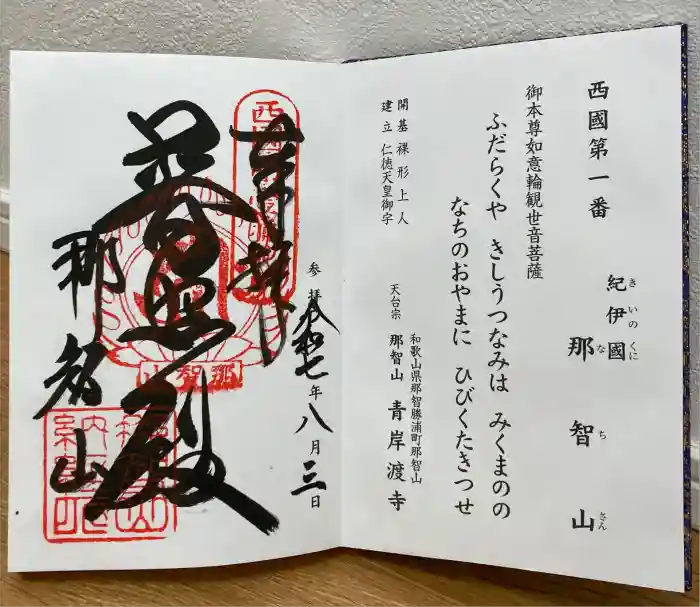 西國第一番
紀伊國
きいのくに
那智山
なちさん
御本尊如意輪観世音菩薩
ふだらくや きしうつなみは みくまのの
なちのおやまに ひびくたきつせ
開基 裸形上人
建立 仁徳天皇御宇
和歌山県那智勝浦町那智山
天台宗 那智山 青岸渡寺
奉拝
参拝 令和七年八月三日
普照殿
那智山
那智山